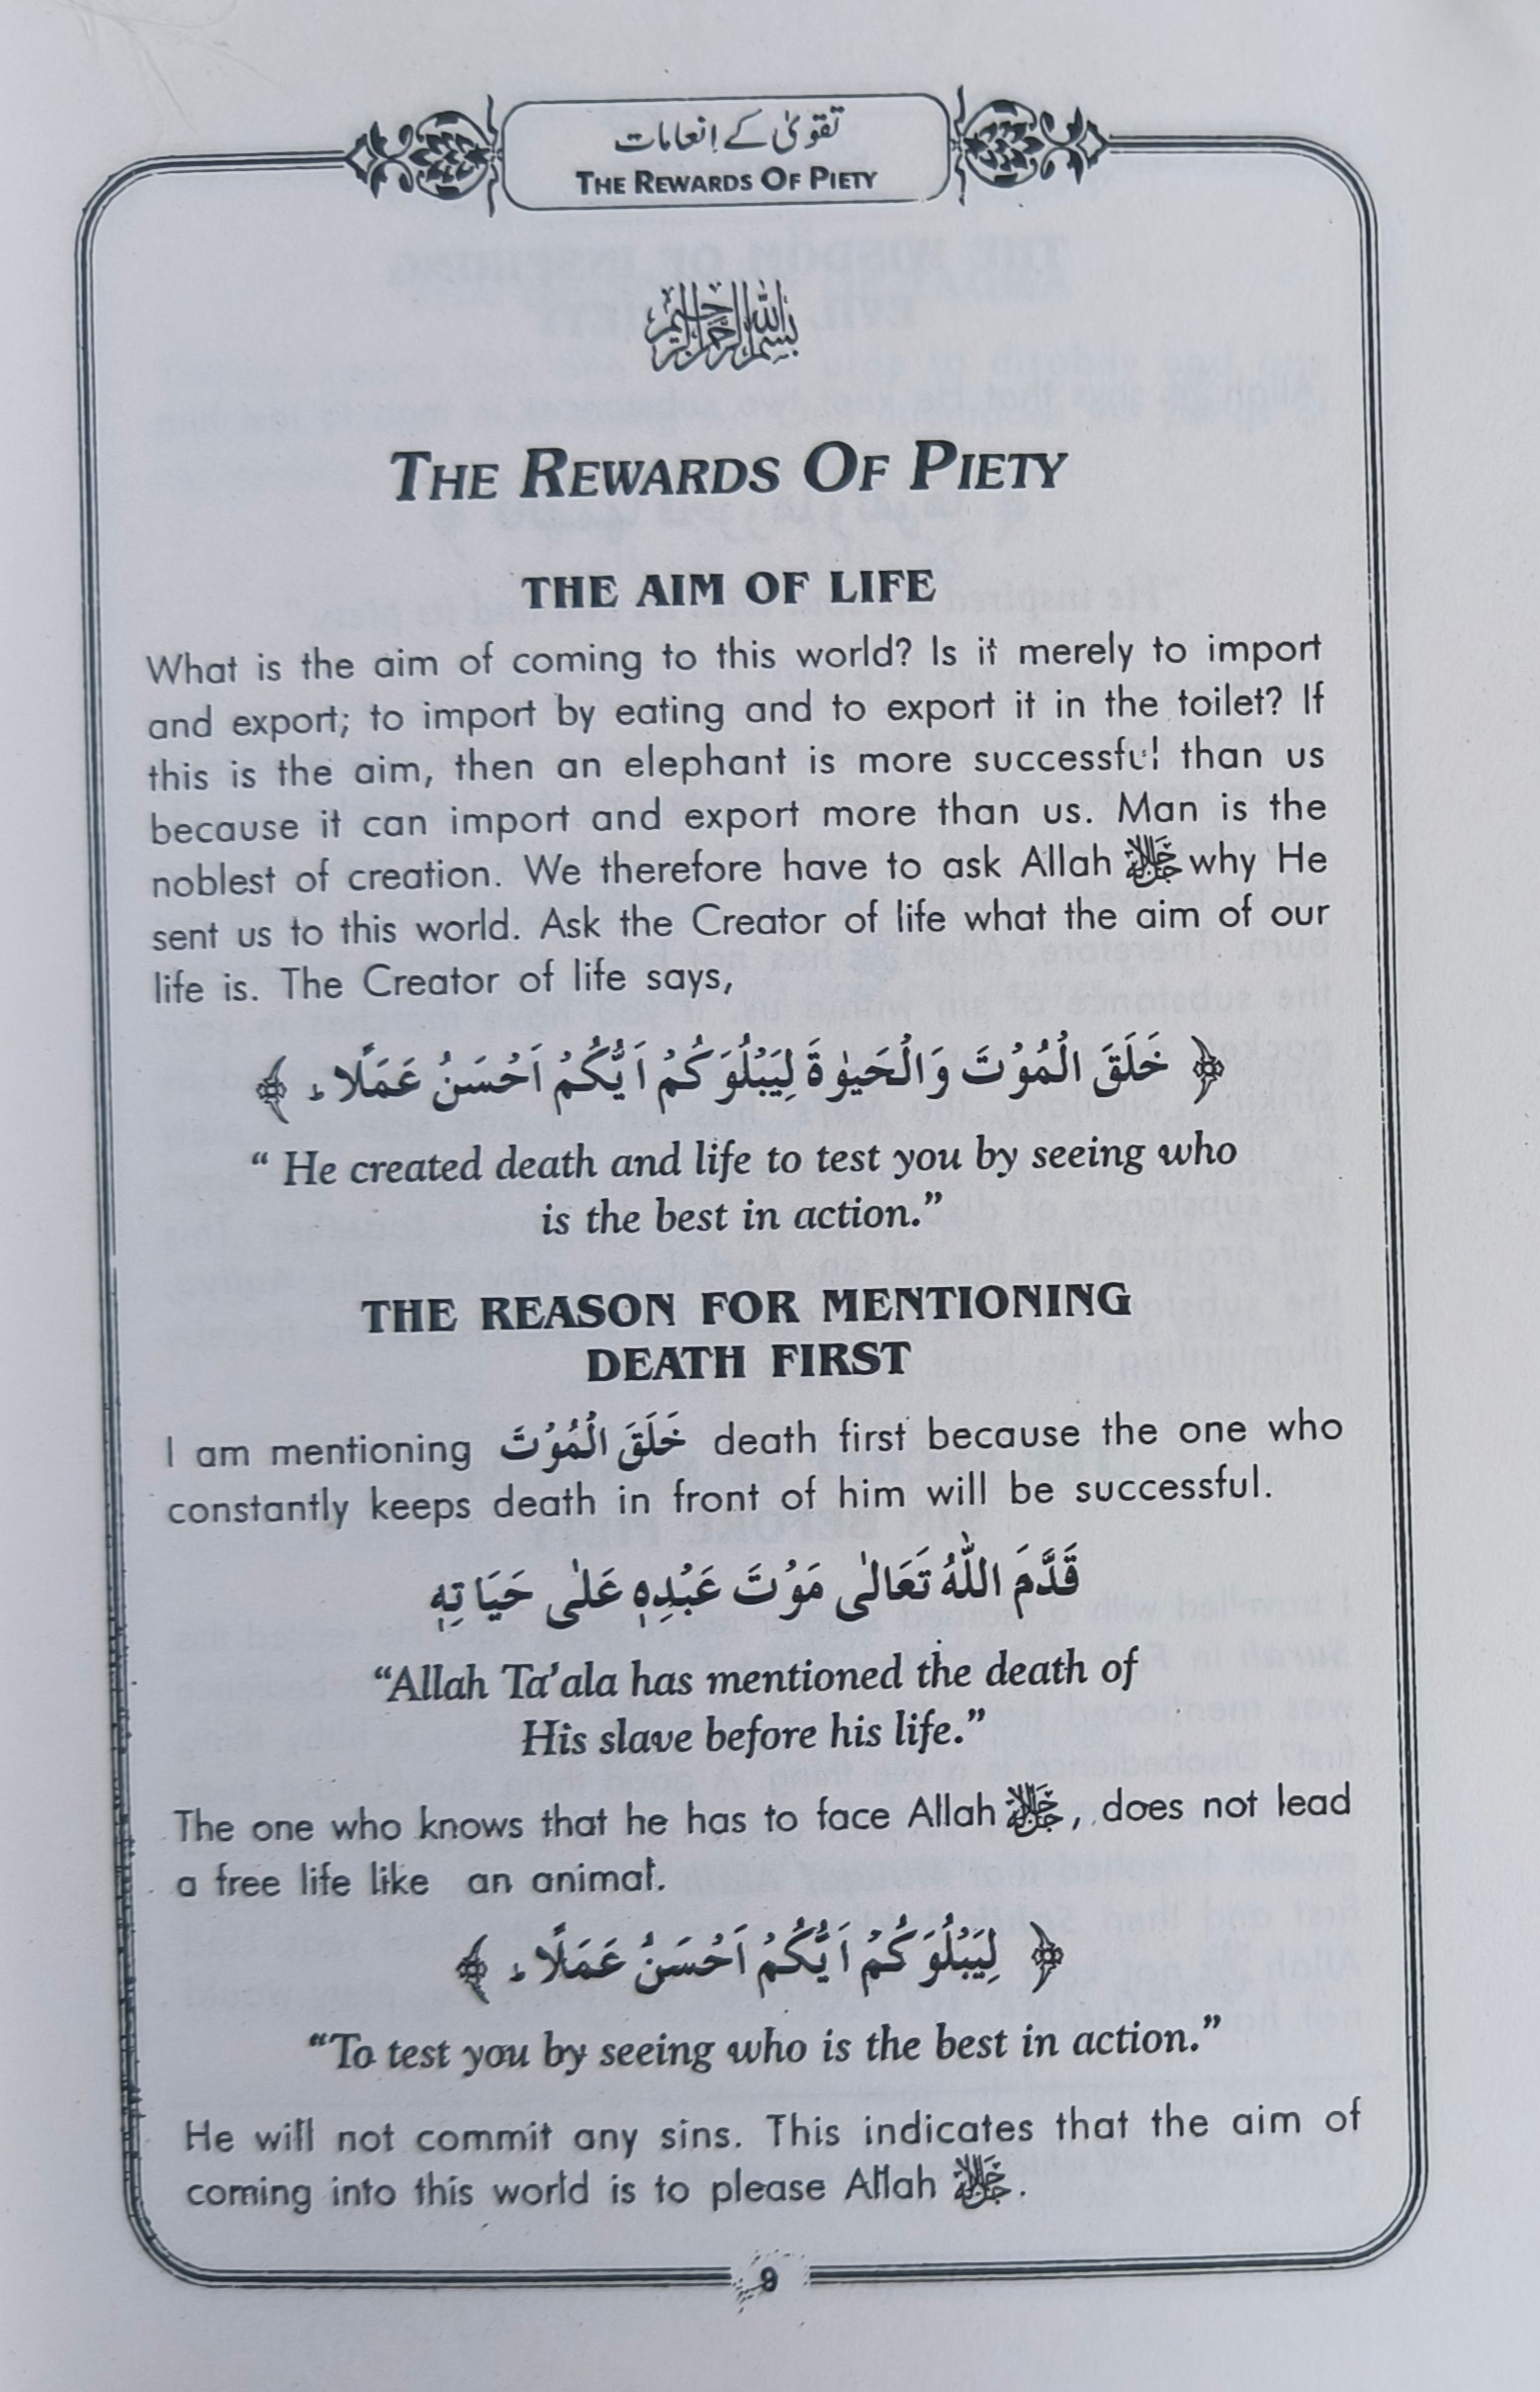 تقویٰ کے اِنعامات
THE REWARDS OF PIETY
بسم الله الرحمن الرحيم
THE REWARDS OF PIETY
THE AIM OF LIFE
What is the aim of coming to this world? Is it merely to import
and export; to import by eating and to export it in the toilet? If
this is the aim, then an elephant is more successful than us
because it can import and export more than us. Man is the
noblest of creation. We therefore have to ask Allah جل جلاله why He
sent us to this world. Ask the Creator of life what the aim of our
life is. The Creator of life says,
﴿ خَلَقَ الْمَوْتَ وَالْحَيٰوةَ لِيَبْلُوَكُمْ اَيُّكُمْ اَحْسَنُ عَمَلًا ؕ ﴾
“ He created death and life to test you by seeing who
is the best in action.”
THE REASON FOR MENTIONING
DEATH FIRST
I am mentioning خَلَقَ الْمَوْتَ death first because the one who
constantly keeps death in front of him will be successful.
قَدَّمَ اللّٰهُ تَعَالٰى مَوْتَ عَبْدِهٖ عَلٰى حَيَاتِهٖ
“Allah Ta’ala has mentioned the death of
His slave before his life.”
The one who knows that he has to face Allah جل جلاله, does not lead
a free life like an animal.
﴿ لِيَبْلُوَكُمْ اَيُّكُمْ اَحْسَنُ عَمَلًا ؕ ﴾
“To test you by seeing who is the best in action.”
He will not commit any sins. This indicates that the aim of
coming into this world is to please Allah جل جلاله.
9